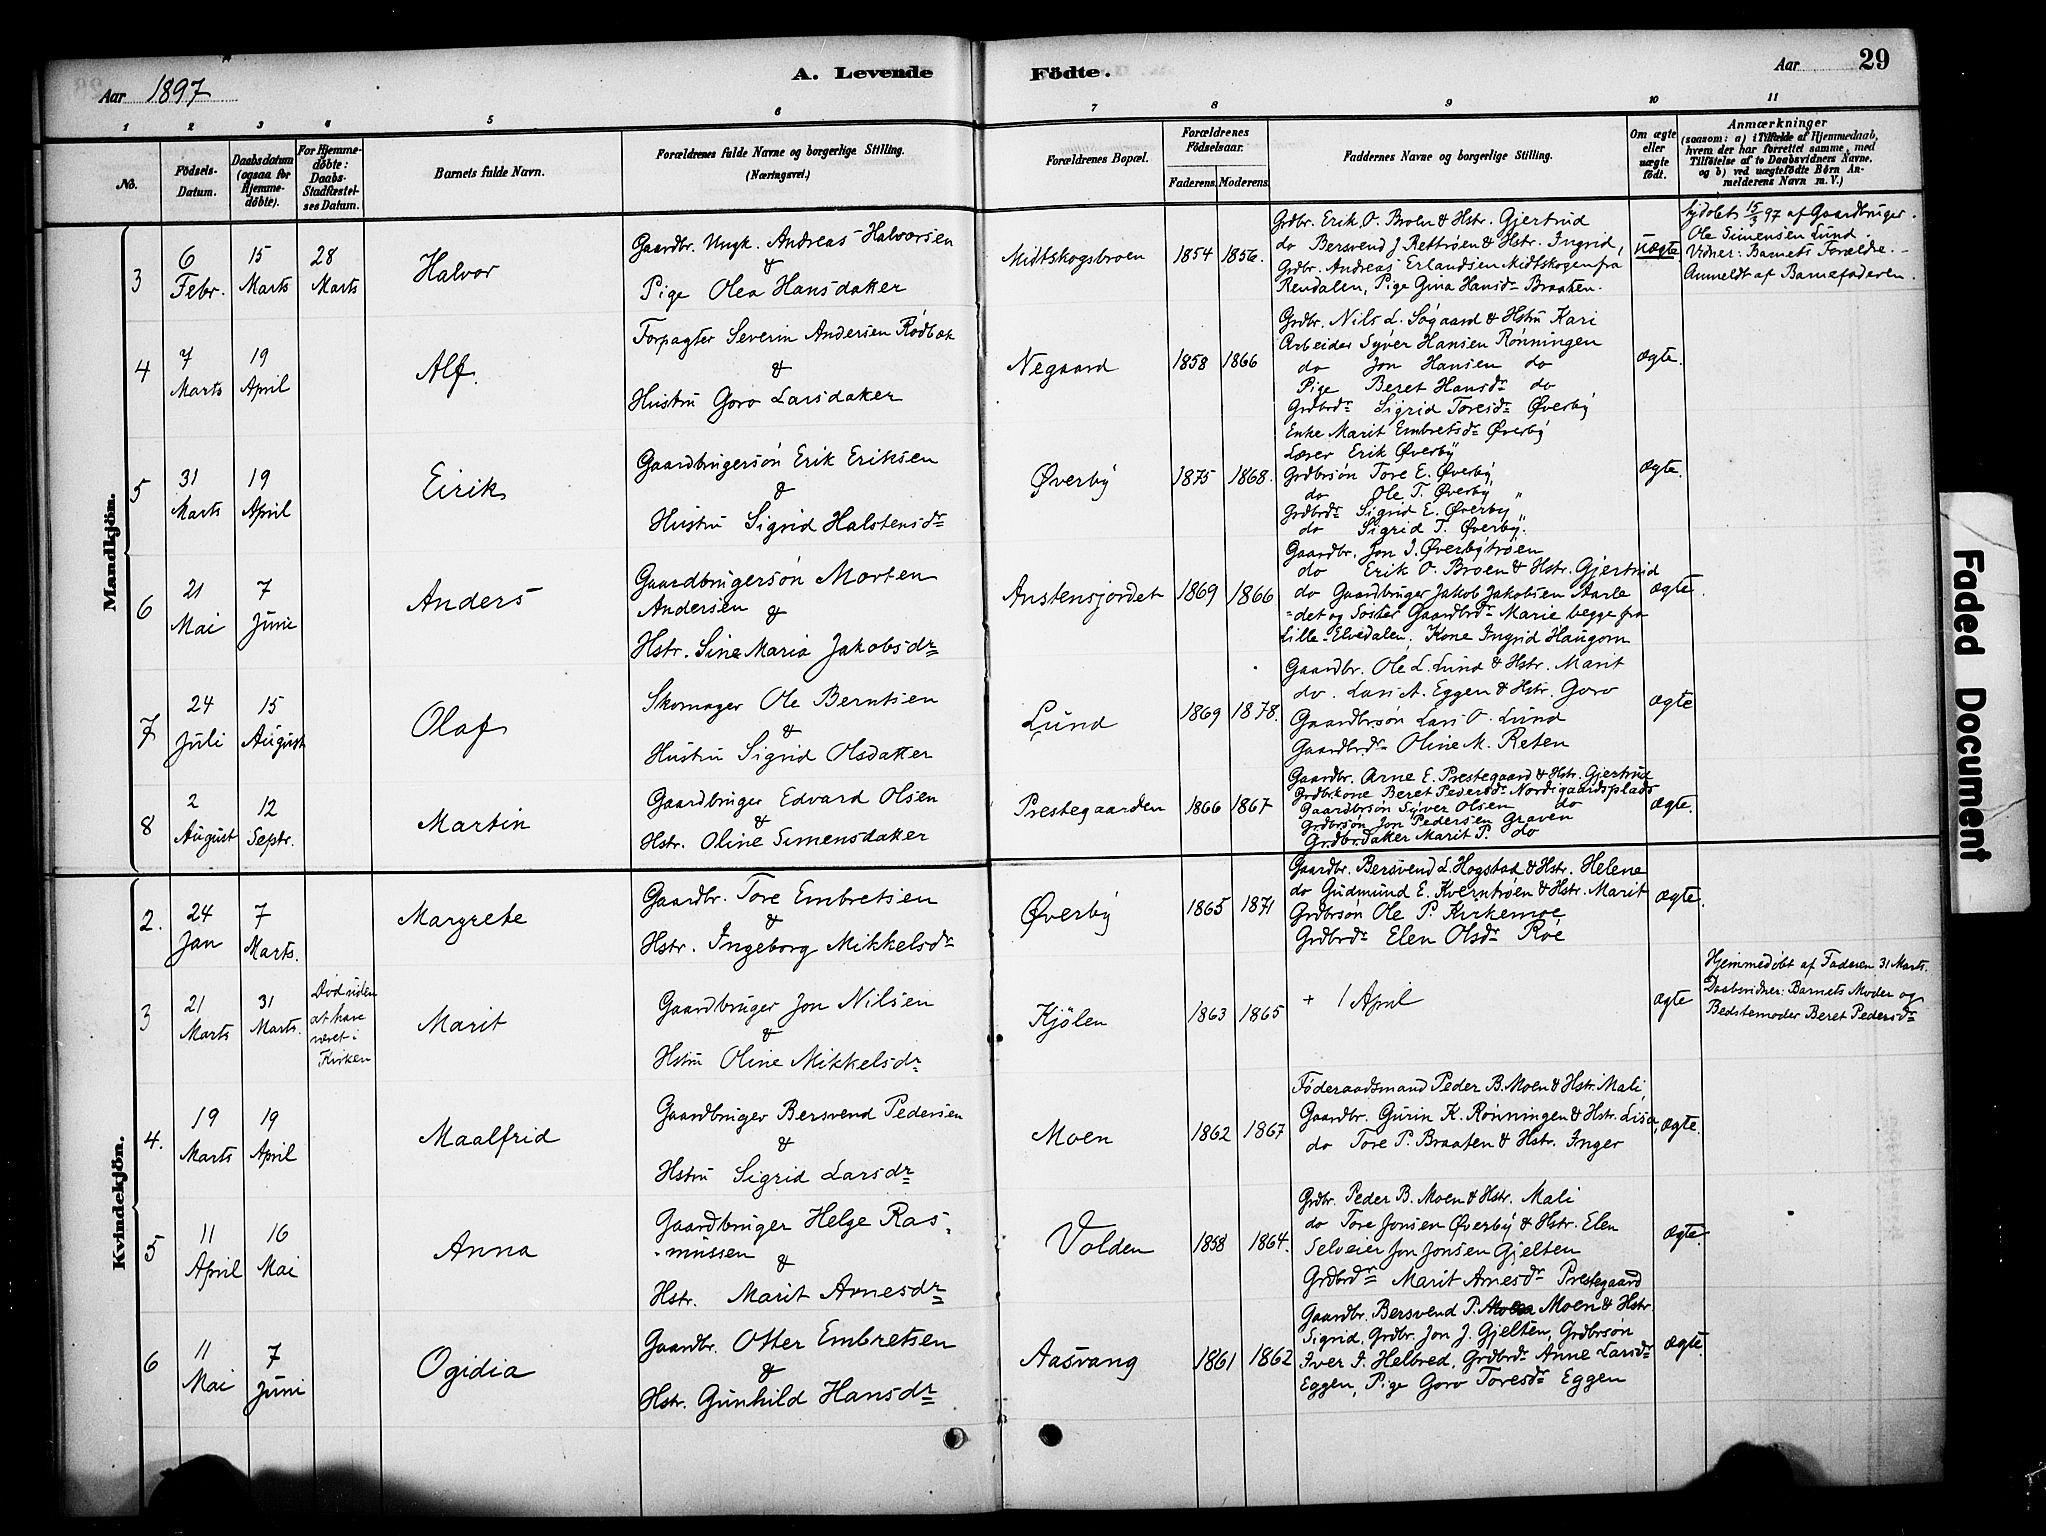 Aar 1897
A. Levende Födte.
Aar 29
1 2 3 4 5 6 7 8 9 10 11
No.
Födsels-Datum.
Daabsdatum (ogsaa for Hjemmedöbte).
For Hjemmedöbte: Daabs-Stadfæstelses Datum.
Barnets fulde Navn.
Forældrenes fulde Navne og borgerlige Stilling. (Næringsvei.)
Forældrenes Bopæl.
Forældrenes Födselsaar.
Faderens. Moderens.
Faddernes Navne og borgerlige Stilling.
Om ægte eller uægte födt.
Anmærkninger
(saasom: a) i Tilfælde af Hjemmedaab, hvem der har forrettet samme, med Tilföielse af to Daabsvidners Navne, og b) ved uægtefödte Börn Anmelderens Navn m. V.)
Mandkjön.
3
6 Febr.
15 Marts
28 Marts
Halvor
Gaardbr. Ungk. Andreas Halvorsen
&
Pige Olea Hansdatter
Midtskogsbroen
1854 1856.
Grdbr. Erik O. Broen & Hstr. Gjertrud
do Bersvend J. Rettrøen & Hstr. Ingrid,
Grdbr. Andreas Erlandsen Midtskogen fra
Rendalen, Pige Gina Hansdr Braaten.
uægte
15/3 97 af Gaardbruger
Ole Simensen Lund.
Vidner: Barnets Forældre.
Anmeldt af Barnefaderen.
4
7 Marts
19 April
Alf.
Forpagter Severin Andersen Rødbæk
&
Hustru Goro Larsdatter
Negaard
1858 1866
Grdbr. Nils L. Søgaard & Hstru Kari
Arbeider Syver Hansen Rønningen
do Jon Hansen do
Pige Beret Hansdr do
Grdbrdr Sigrid Toresdr Øverby
ægte.
5
31 Marts
19 April
Eirik
Gaardbrugersøn Erik Eriksen
&
Hustru Sigrid Halstensdr
Øverby
1875 1868.
Enke Marit Embretsdr Øverby
Lærer Erik Øverby
Grdbrsøn Tore E. Øverby
do Ole T. Øverby "
Grdbrdr Sigrid E. Øverby "
do Sigrid T. Øverby.
ægte.
6
21 Mai
7 Juni
Anders
Gaardbrugersøn Morten
Andersen &
Hstr. Sine Maria Jakobsdr
Anstensjordet
1869 1866
Gaardbr. Jon J. Øverbytrøen
do Erik O. Broen & Hstr. Gjertrud
do Gaardbruger Jakob Jakobsen Aarle
=det og Søster Gaardbrdr Marie begge fra
Lille-Elvedalen. Kone Ingrid Haugom
ægte.
7
24 Juli
15 August
Olaf
Skomager Ole Berntsen
&
Hustru Sigrid Olsdatter
Lund
1869 1878.
Gaardbr. Ole L. Lund & Hstr. Marit
do. Lars A. Eggen & Hstr. Goro
Gaardbrsøn Lars O. Lund
Gaardbrdr Oline M. Reten
ægte
8
2 August
12 Septr.
Martin
Gaardbruger Edvard Olsen
&
Hstr. Oline Simensdatter
Prestegaarden
1866 1867
Gaardbr. Arne E. Prestegaard & Hstr. Gjertrud
Grdbrkone Beret Pedersdr Nordigaardsplads
Gaardbrsøn Syver Olsen do
Grdbrsøn Jon Pedersen Graven
Grdbrdatter Marit P. do
ægte.
Kvindekjön.
2.
24 Jan
7 Marts.
Margrete
Gaardbr. Tore Embretsen
&
Hstr. Ingeborg Mikkelsdr
Øverby
1865 1871
Gaardbr. Bersvend L. Hogstad & Hstr. Helene
do Gudmund E. Kverntrøen & Hstr. Marit
Grdbrsøn Ole P. Kirkemoe
Grdbrdr Elen Olsdr Roe
ægte.
3
21 Marts
31 Marts.
Død uden at have været i Kirken
Marit
Gaardbruger Jon Nilsen
&
Hstru Oline Mikkelsdr
Kjølen
1863 1865
+ 1 April
ægte
Hjemmedøbt af Faderen 31 Marts.
Daabsvidner: Barnets Moder og
Bedstemoder Beret Pedersdr
4.
19 Marts
19 April
Maalfrid
Gaardbruger Bersvend Pedersen
&
Hstru Sigrid Larsdr
Moen
1862 1867
Føderaadsmand Peder B. Moen & Hstr. Mali,
Gaardbr. Gurin K. Rønningen & Hstr. Lisa,
do Tore P. Braaten & Hstr. Inger
ægte.
5
11 April
16 Mai
Anna
Gaardbruger Helge Ras-
-mussen
&
Hstr. Marit Arnesdr
Volden
1858 1864.
Grdbr. Peder B. Moen & Hstr. Mali
do Tore Jonsen Øverby & Hstr. Elen
Selveier Jon Jonsen Gjelten
Grdbrdr Marit Arnesdr Prestegaard
ægte.
6
11 Mai
7 Juni
Ogidia
Gaardbr. Otter Embretsen
&
Hstr. Gunhild Hansdr
Aasvang
1861 1862
Gaardbr. Bersvend P. Moen & Hstr.
Sigrid, Grdbr. Jon J. Gjelten, Grdbrsøn
Iver J. Helbred, Grdbrdr Anne Larsdr
Eggen, Pige Goro Toresdr Eggen
ægte.
Faded Document